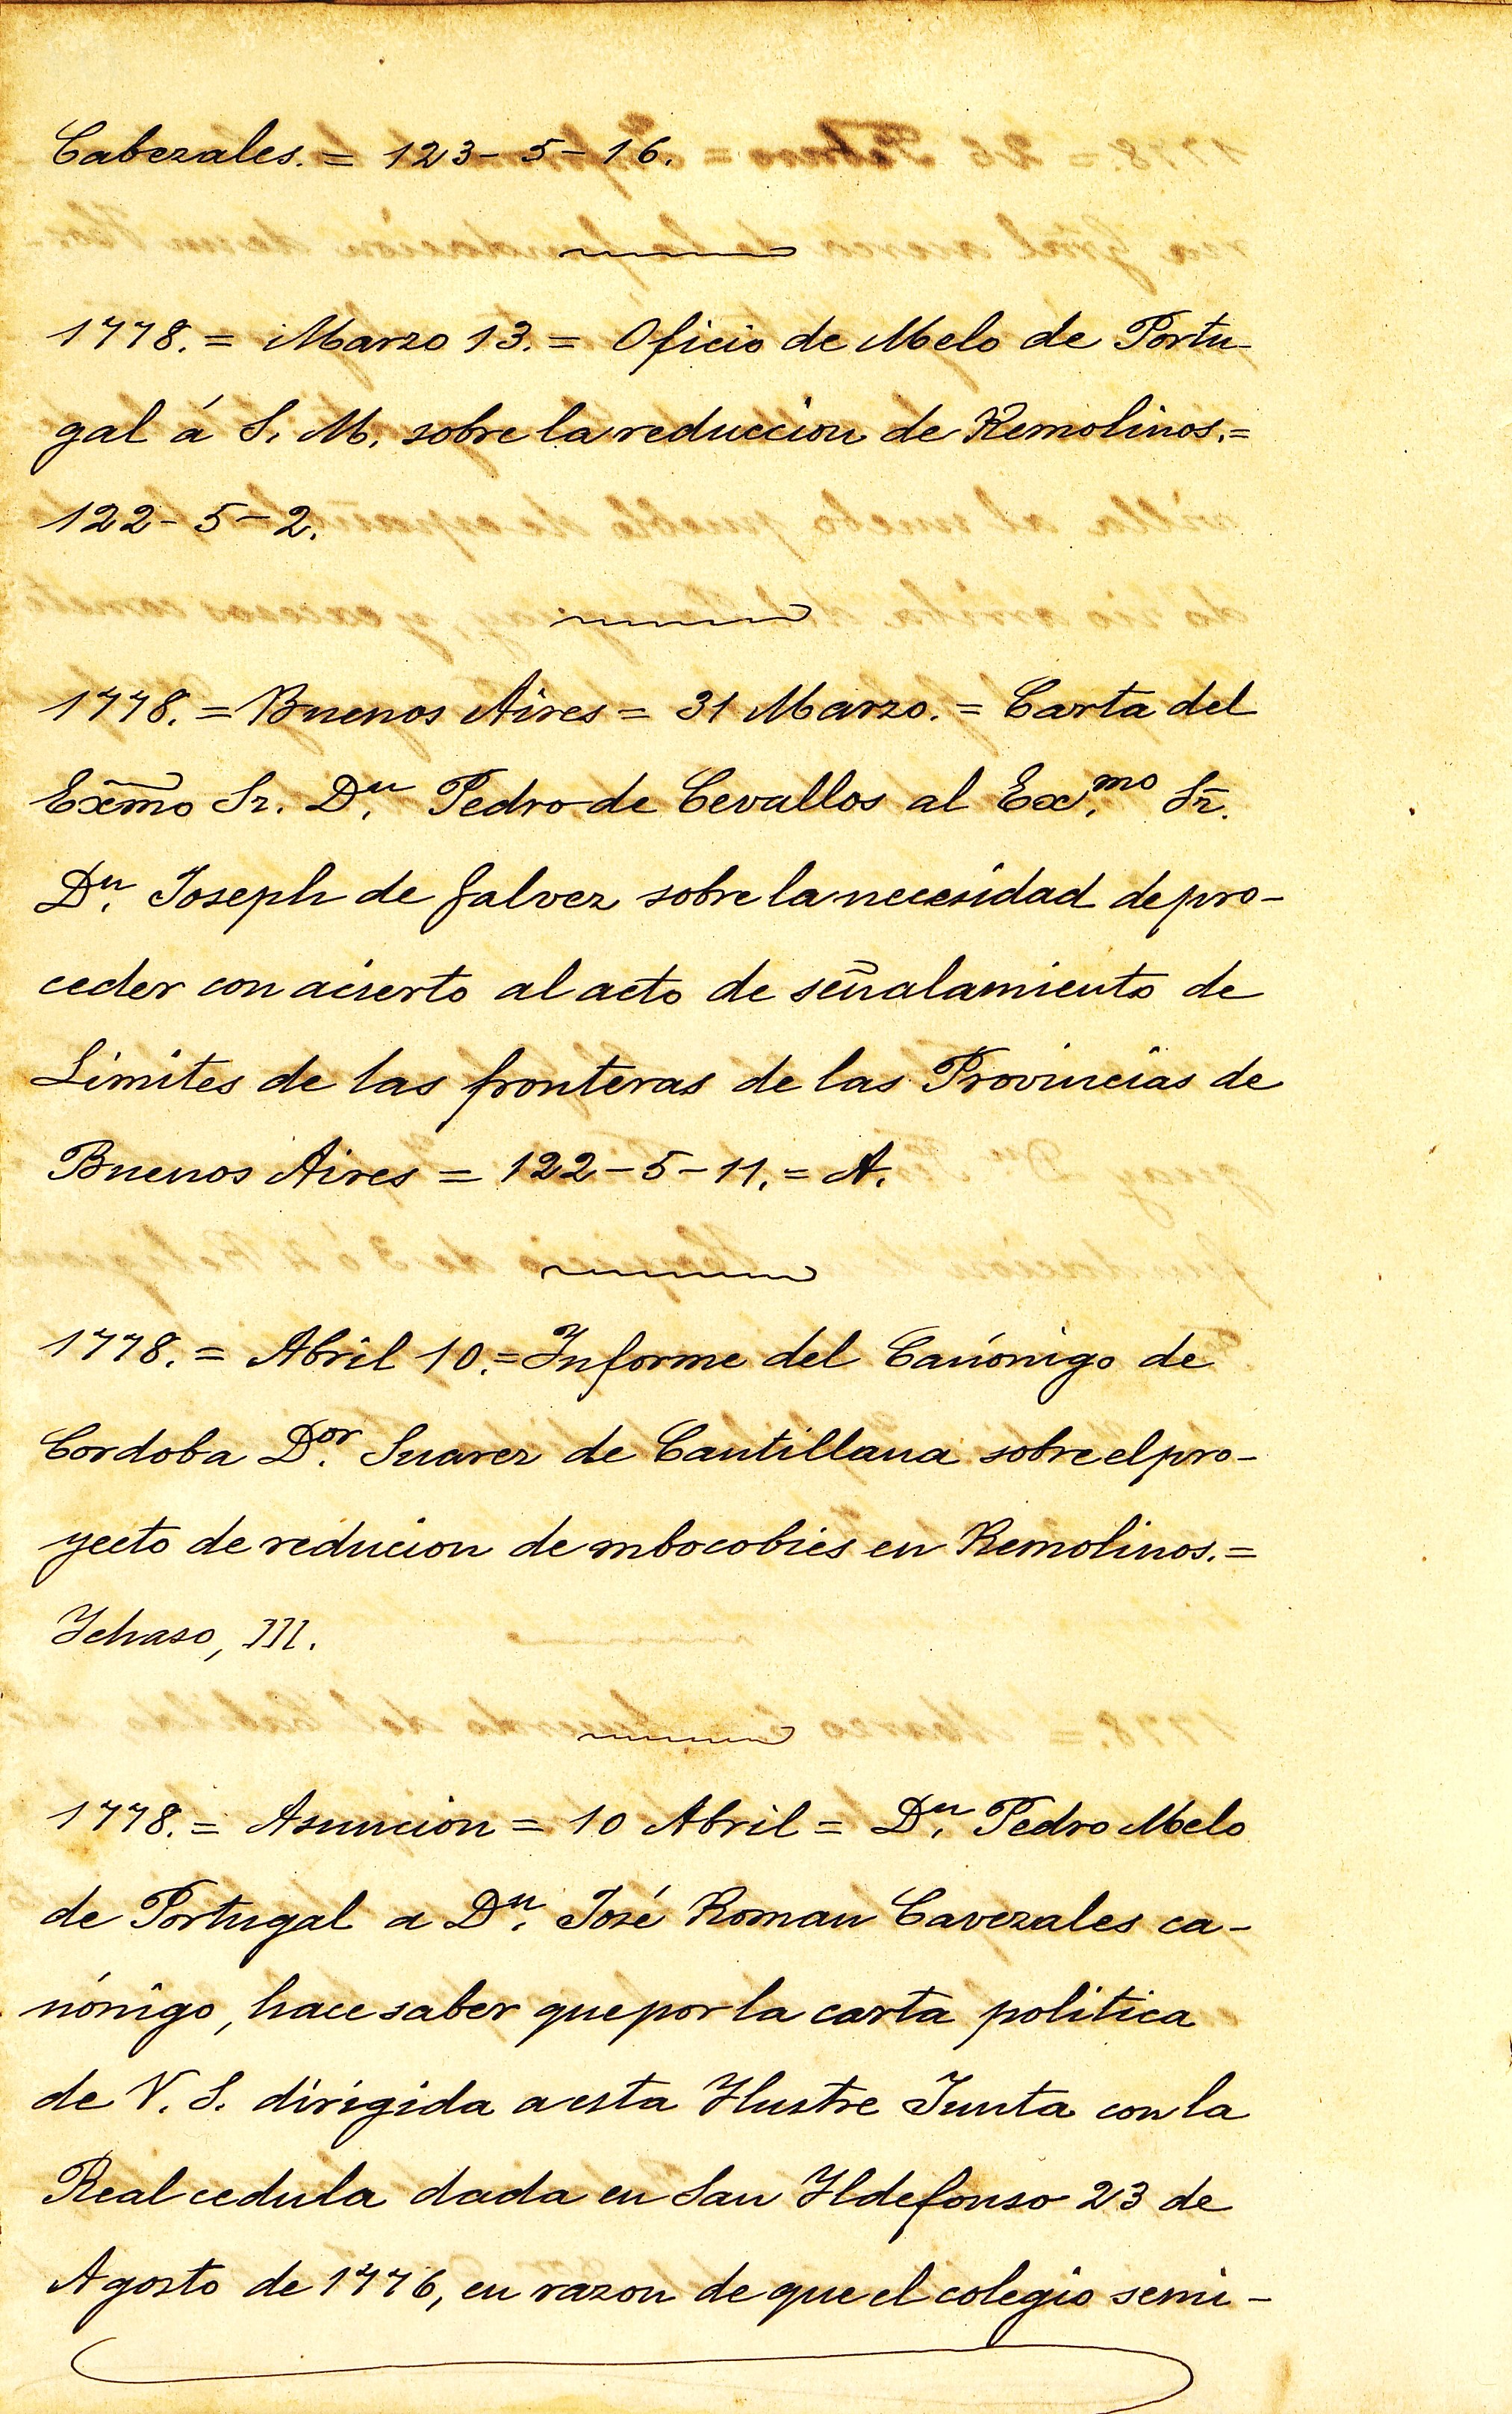 Cabezales. = 123-5-16.
1778. = Marzo 13. = Oficio de Melo de Portu-
gal á S. M. sobre la reduccion de Remolinos. =
122-5-2.
1778. = Buenos Aires = 31 Marzo. = Carta del
Exm̃o Sr. Dn. Pedro de Cevallos al Ex.mo Sr̃.
Dn. Joseph de Galvez sobre la necesidad de pro-
ceder con acierto al acto de señalamiento de
Limites de las fronteras de las Provincias de
Buenos Aires = 122-5-11. = A.
1778. = Abril 10. = Informe del Canónigo de
Cordoba Dor. Suarez de Cantillana sobre el pro-
yecto de reducion de mbocobies en Remolinos. =
Ichaso, III.
1778. = Asuncion = 10 Abril = Dn. Pedro Melo
de Portugal a Dn. José Roman Cavezales ca-
nónigo, hace saber que por la carta politica
de V. S. dirigida a esta Ilustre Junta con la
Real cedula dada en San Ildefonso 23 de
Agosto de 1776, en razon de que el colegio semi-